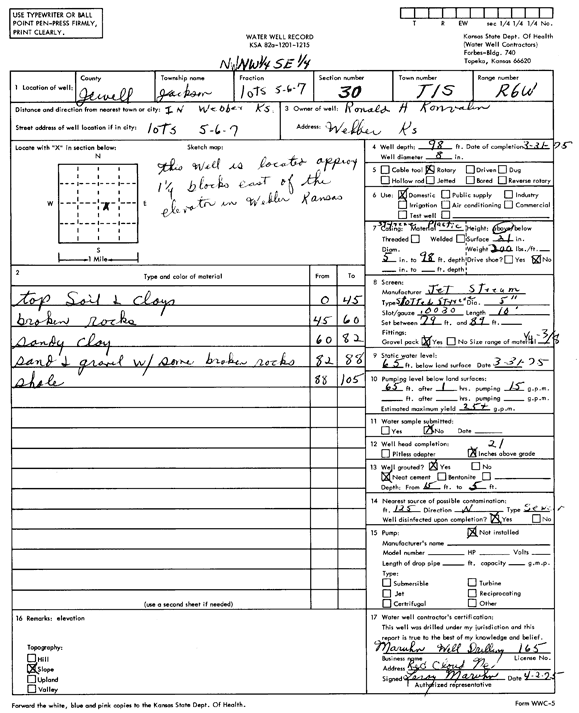 USE TYPEWRITER OR BALL
POINT PEN-PRESS FIRMLY,
PRINT CLEARLY.
WATER WELL RECORD
KSA 82a-1201-1215
T R EW sec 1/4 1/4 1/4 No.
Kansas State Dept. Of Health
(Water Well Contractors)
Forbes-Bldg. 740
Topeka, Kansas 66620
NW¼ SE ¼
1 Location of well: County Jewell Township name Jackson Fraction lots 5-6-7 Section number 30 Town number T1S Range number R6W
Distance and direction from nearest town or city: IN Webber Ks.
Street address of well location if in city: lots 5-6-7
3 Owner of well: Ronald H Konvalin
Address: Webber Ks
Locate with "X" in section below:
N
W X E
S
1 Mile
Sketch map:
this well is located approx
1¼ blocks east of the
elevator in Webber Kansas
4 Well depth: 98 ft. Date of completion 3-31-75
Well diameter 8 in.
5 Cable tool X Rotary Driven Dug
Hollow rod Jetted Bored Reverse rotary
6 Use: X Domestic Public supply Industry
Irrigation Air conditioning Commercial
Test well
7 Casing: Material Styrene Plastic Height: Above/below
Threaded Welded Surface 21 in.
Diam. Weight 200 lbs./ft.
5 in. to 98 ft. depth Drive shoe? Yes X No
in. to ft. depth
2 Type and color of material From To
top Soil & clays 0 45
broken rocks 45 60
sandy clay 60 82
sand & gravel w/ some broken rocks 82 88
shale 88 105
(use a second sheet if needed)
8 Screen:
Manufacturer Jet Stream
Type Slotted Styrene Dia. 5"
Slot/gauze .0030 Length 10'
Set between 79 ft. and 89 ft.
Fittings:
Gravel pack X Yes No Size range of material ¼-3/8
9 Static water level:
65 ft. below land surface Date 3-31-75
10 Pumping level below land surfaces:
65 ft. after 1 hrs. pumping 15 g.p.m.
ft. after hrs. pumping g.p.m.
Estimated maximum yield 25+ g.p.m.
11 Water sample submitted:
Yes X No Date
12 Well head completion: 21
Pitless adapter X Inches above grade
13 Well grouted? X Yes No
X Neat cement Bentonite
Depth: From ft. to 5 ft.
14 Nearest source of possible contamination:
ft. 125 Direction N Type Sewer
Well disinfected upon completion? X Yes No
15 Pump: X Not installed
Manufacturer's name
Model number HP Volts
Length of drop pipe ft. capacity g.m.p.
Type:
Submersible Turbine
Jet Reciprocating
Certrifugal Other
16 Remarks: elevation
Topography:
Hill
X Slope
Upland
Valley
17 Water well contractor's certification:
This well was drilled under my jurisdiction and this
report is true to the best of my knowledge and belief.
Maruhn Well Drilling 165
Business name License No.
Address Red Cloud Ne.
Signed Leroy Maruhn Date 4-2-75
Authorized representative
Forward the white, blue and pink copies to the Kansas State Dept. Of Health.
Form WWC-5